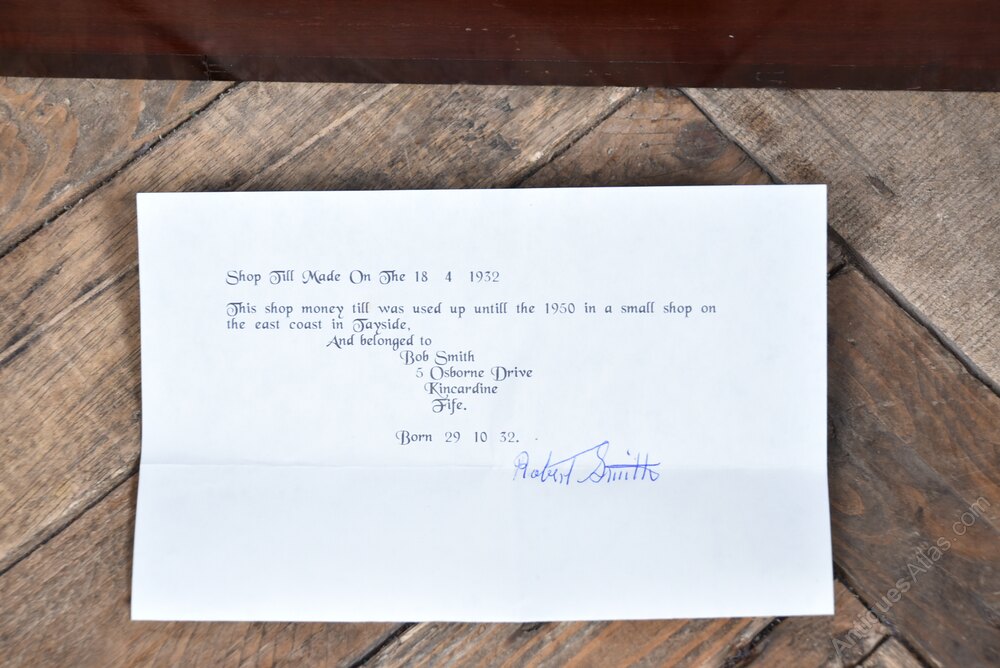 Shop Till Made On The 18 4 1932
This shop money till was used up untill the 1950 in a small shop on
the east coast in Tayside,
And belonged to
Bob Smith
5 Osborne Drive
Kincardine
Fife.
Born 29 10 32.
Robert Smith
AntiquesAtlas.com